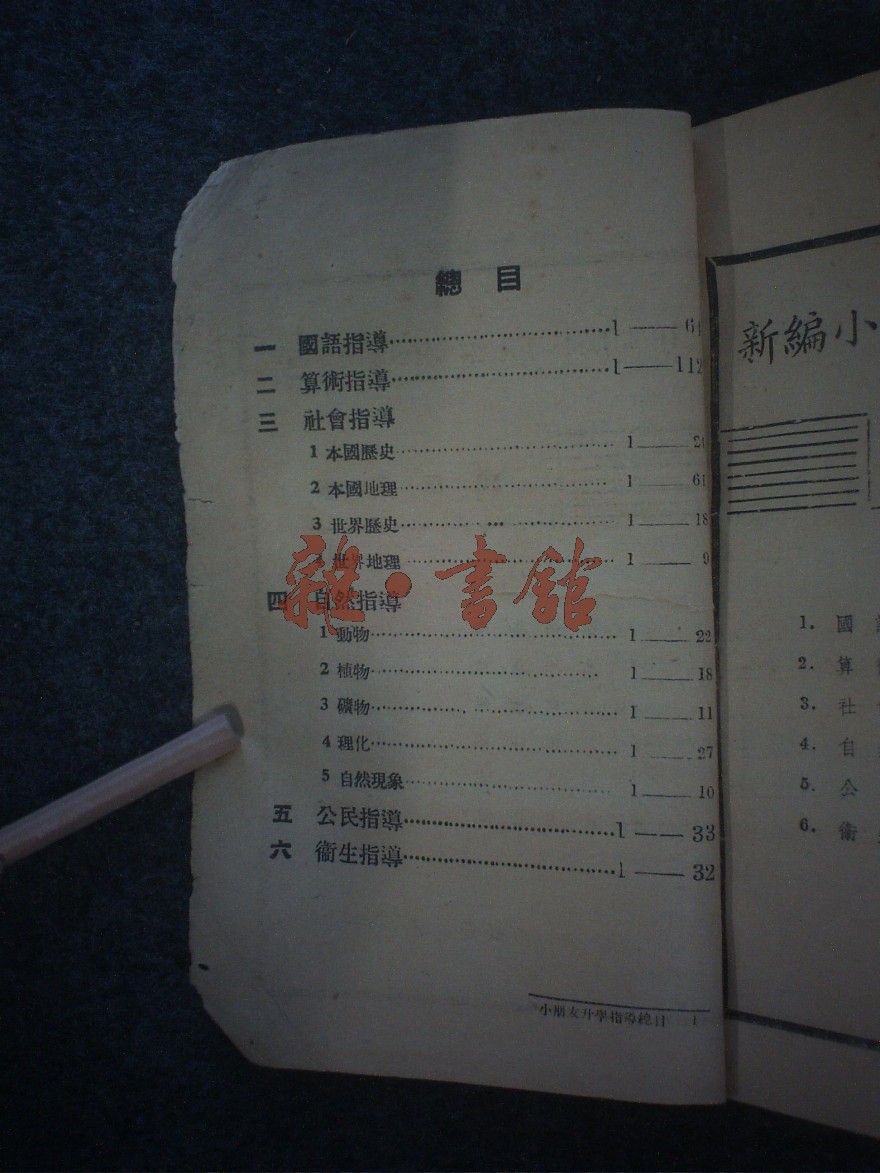 總 目
一 國語指導 1——64
二 算術指導 1——112
三 社會指導
1 本國歷史 1——
2 本國地理 1——61
3 世界歷史 1——18
世界地理 1——9
四 自然指導
1 動物 1——22
2 植物 1——18
3 礦物 1——11
4 理化 1——27
5 自然現象 1——10
五 公民指導 1——33
六 衞生指導 1——32
小朋友升學指導總目 1
雜·書館
新編小
1. 國
2. 算
3. 社
4. 自
5. 公
6. 衞